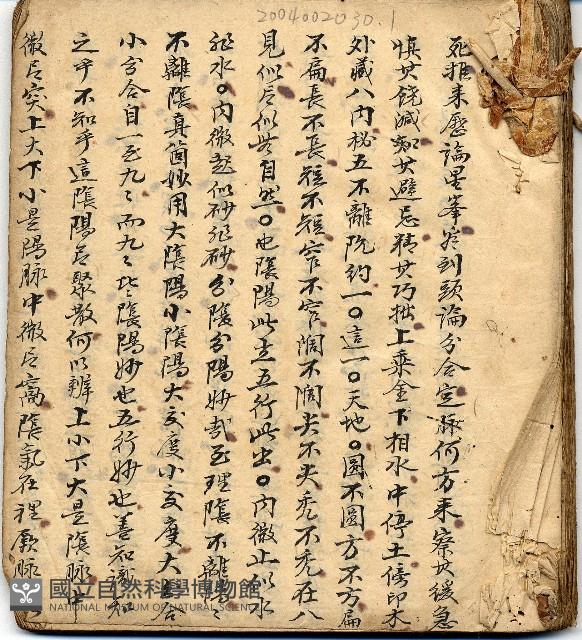 2004002030.1
死推來歷論星峯究到頭論分合定脉何方來察其緩急
慎其饒減知其避忌精其巧拙上乘金下相水中停土傍印木
外藏八內秘五不離阮約一〇這一〇天地〇圓不圓方不方扁
不扁長不長短不短窄不窄闊不闊尖不尖禿不禿在八
見似、似世自然〇也陰陽此立五行此出〇內微止似水
非水〇內微起似砂非砂分陰分陽妙哉至理陰不離〻
不離陰真箇妙用大陰陽小陰陽大交度小交度大
小分合自一至九〻而九〻比〻陰陽妙也五行妙也善知識知
之乎不知乎這陰陽聚散何以辨上小下大是陰脉中
微突上大下小是陽脉中微窩陰氣在裡厥脉
國立自然科學博物館
NATIONAL MUSEUM OF NATURAL SCIENCE